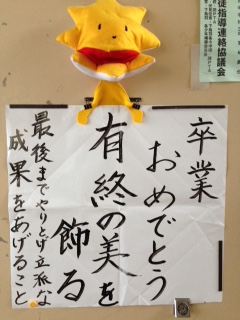 卒業
おめでとう
有終の美を
飾る
最後までやりとげ立派な
成果をあげること
徒指導連絡協議会